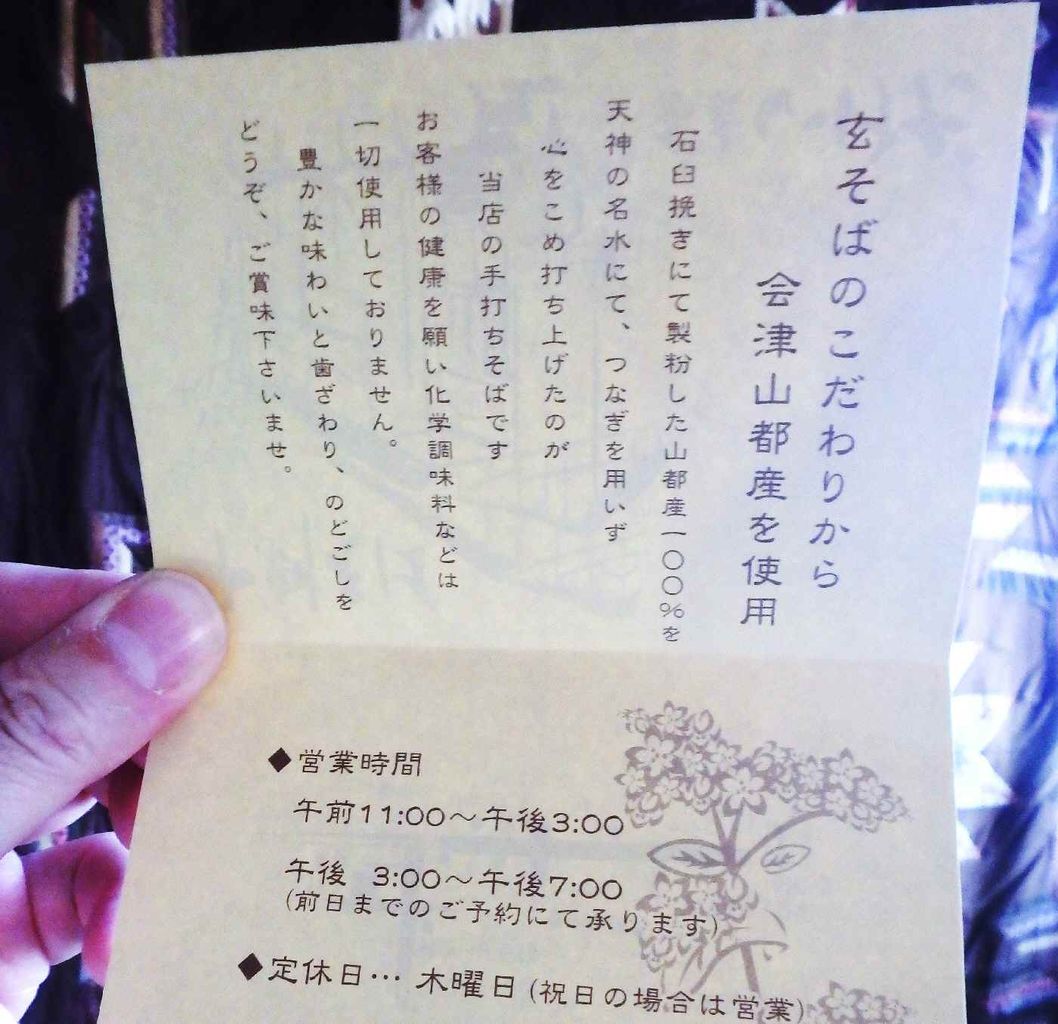 玄そばのこだわりから
会津山都産を使用
石臼挽きにて製粉した山都産一〇〇%を
天神の名水にて、つなぎを用いず
心をこめ打ち上げたのが
当店の手打ちそばです
お客様の健康を願い化学調味料などは
一切使用しておりません。
豊かな味わいと歯ざわり、のどごしを
どうぞ、ご賞味下さいませ。
◆営業時間
午前11:00～午後3:00
午後 3:00～午後7:00
(前日までのご予約にて承ります)
◆定休日… 木曜日(祝日の場合は営業)